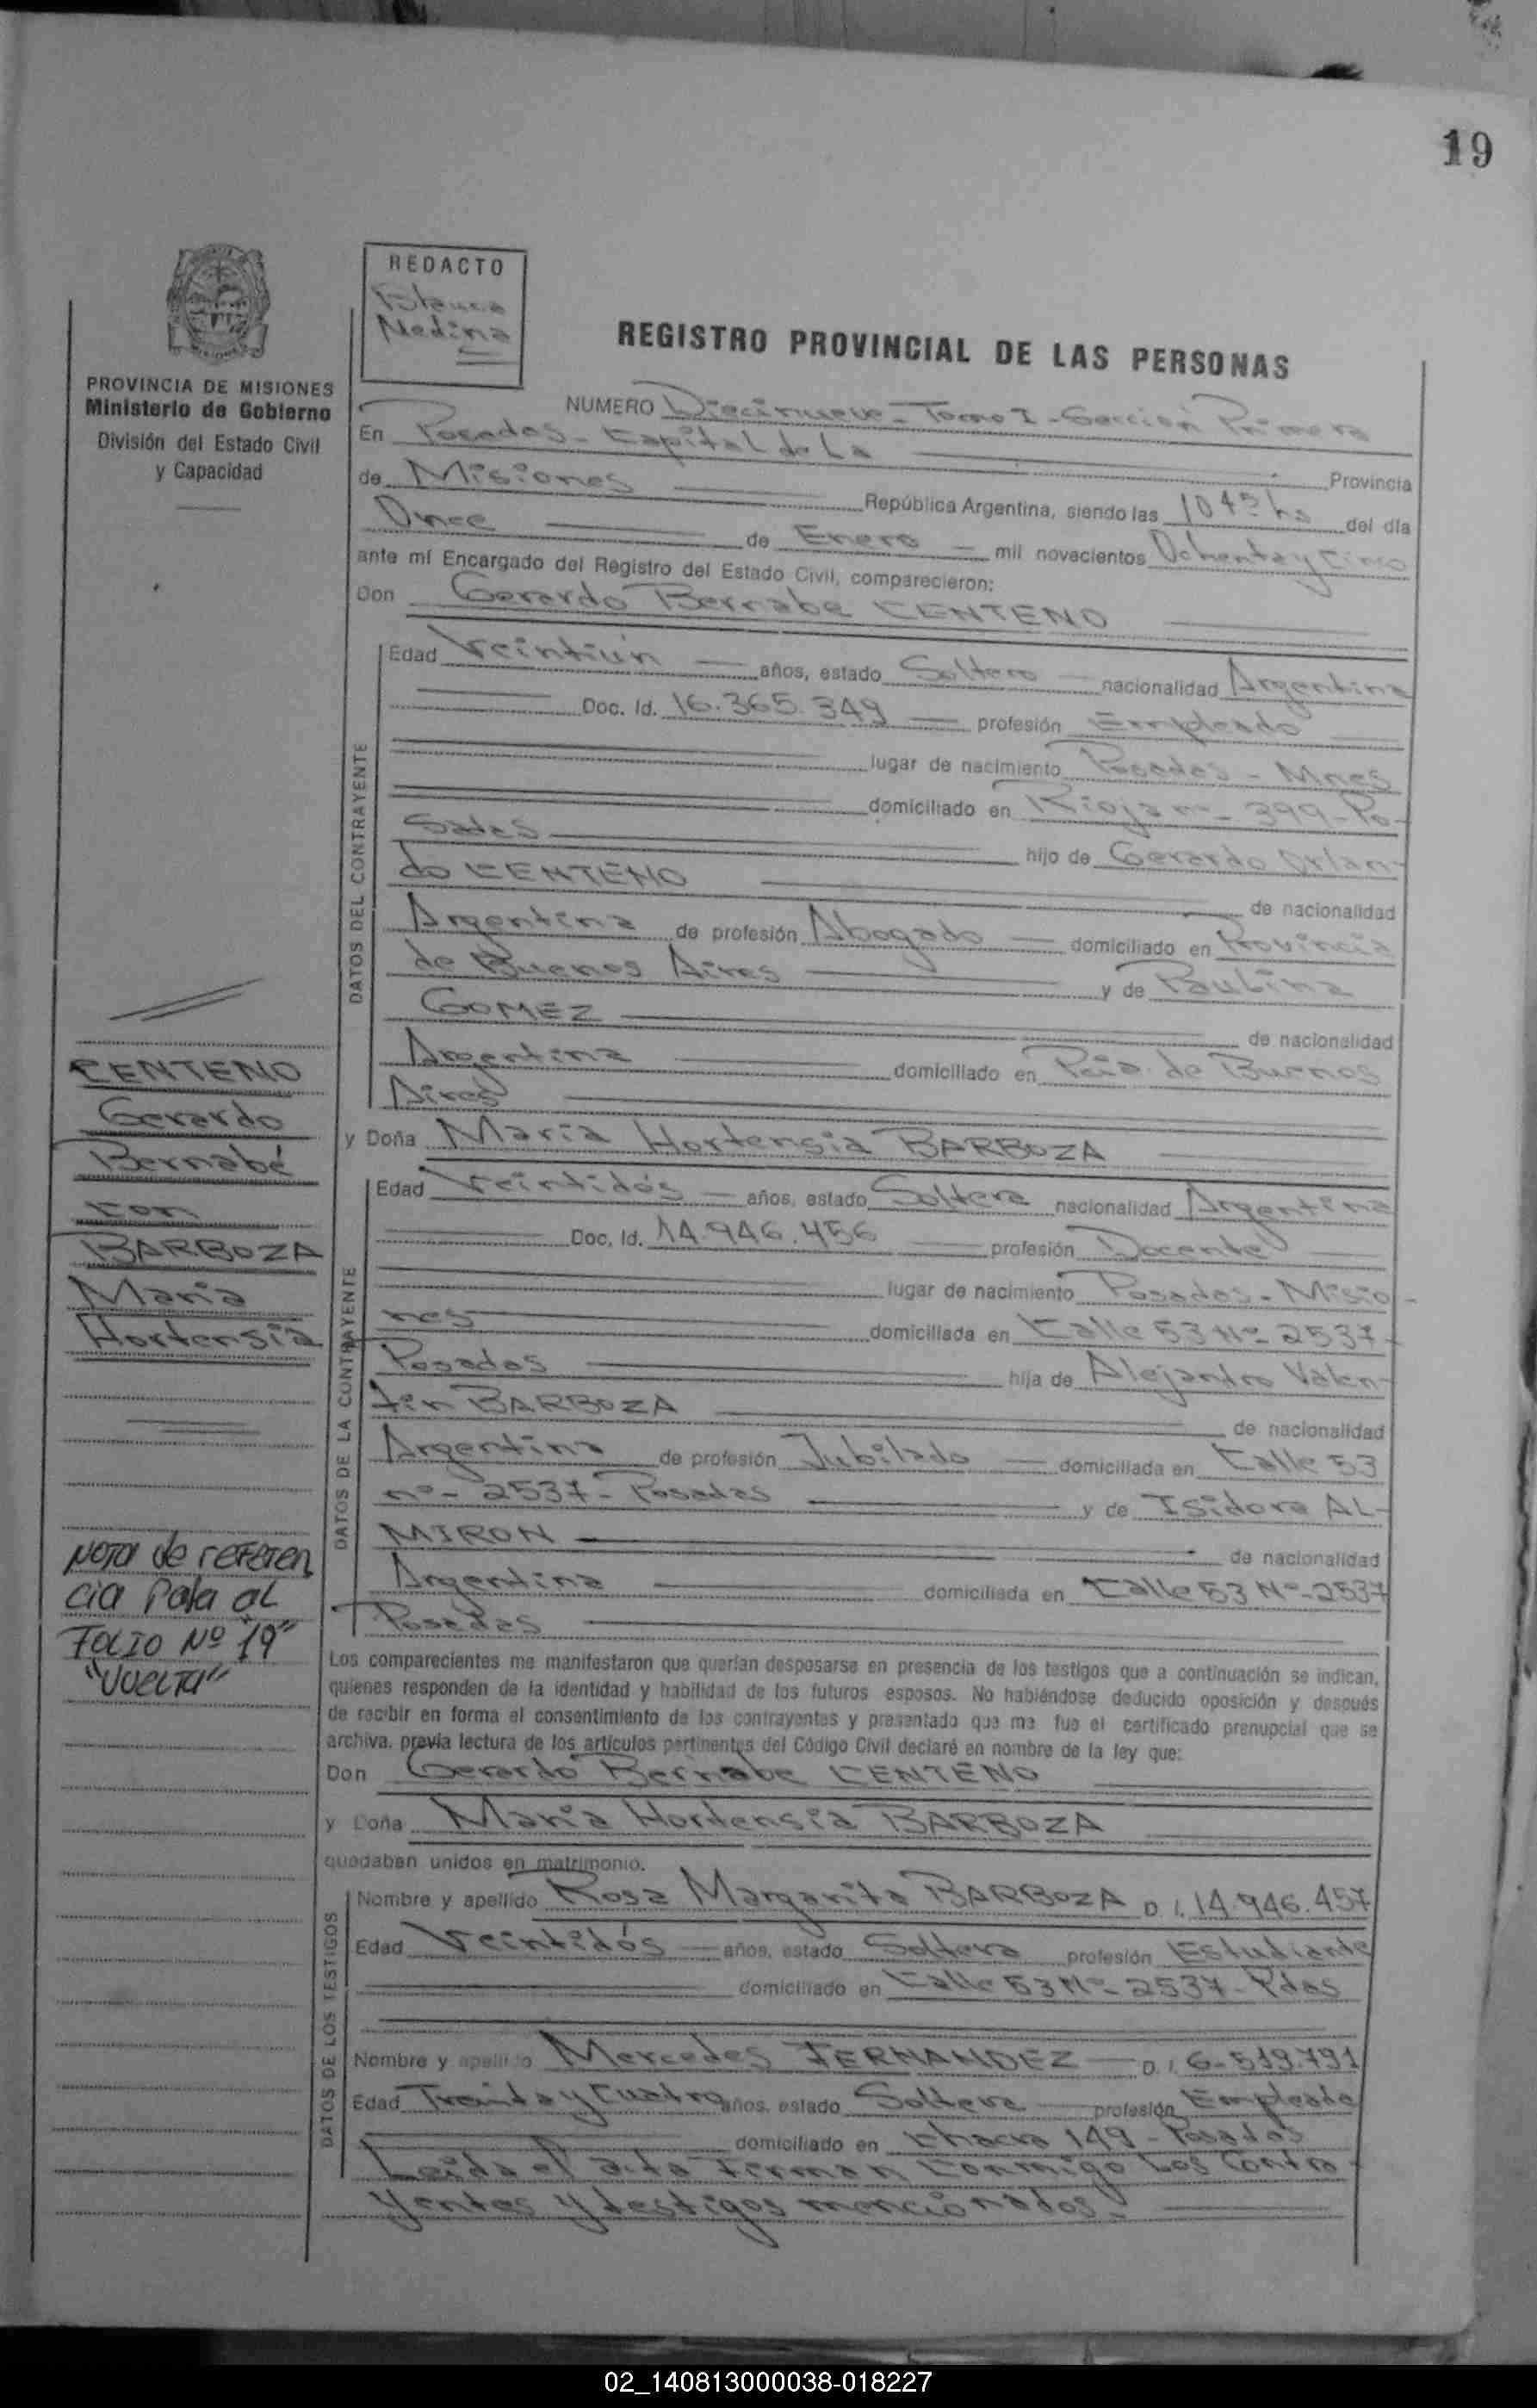 19
REDACTO
Medina
PROVINCIA DE MISIONES
Ministerio de Gobierno
División del Estado Civil
y Capacidad
REGISTRO PROVINCIAL DE LAS PERSONAS
NUMERO Diecinueve - Tomo I - Sección Primera
En Posadas - Capital de La Provincia
de Misiones República Argentina, siendo las 10 45 hs del día
Once de Enero mil novecientos Ochenta y Cinco
ante mí Encargado del Registro del Estado Civil, comparecieron:
Don Gerardo Bernabe CENTENO
DATOS DEL CONTRAYENTE
Edad Veintiún años, estado Soltero nacionalidad Argentina
Doc. Id. 16.365.349 profesión Empleado
lugar de nacimiento Posadas - Mnes
domiciliado en Rioja nº 399 - Po-
sadas hijo de Gerardo Orlan-
do CENTENO
de nacionalidad
Argentina de profesión Abogado domiciliado en Provincia
de Buenos Aires y de Paulina
GOMEZ
de nacionalidad
Argentina domiciliado en Pcia. de Buenos
Aires
y Doña María Hortensia BARBOZA
DATOS DE LA CONTRAYENTE
Edad Veintidós años, estado Soltera nacionalidad Argentina
Doc. Id. 14.946.456 profesión Docente
lugar de nacimiento Posadas - Misio-
nes domiciliada en Calle 53 Nº 2537-
Posadas hija de Alejandro Valen-
tin BARBOZA
de nacionalidad
Argentina de profesión Jubilado domiciliada en Calle 53
nº - 2537 - Posadas y de Isidora AL-
MIRON de nacionalidad
Argentina domiciliada en Calle 53 Nº - 2537
Posadas
Los comparecientes me manifestaron que querían desposarse en presencia de los testigos que a continuación se indican,
quienes responden de la identidad y habilidad de los futuros esposos. No habiéndose deducido oposición y después
de recibir en forma el consentimiento de los contrayentes y presentado que me fue el certificado prenupcial que se
archiva. previa lectura de los artículos pertinentes del Código Civil declaré en nombre de la ley que:
Don Gerardo Bernabe CENTENO
y Doña María Hortensia BARBOZA
quedaban unidos en matrimonio.
DATOS DE LOS TESTIGOS
Nombre y apellido Rosa Margarita BARBOZA D. I. 14.946.457
Edad Veintidós años, estado Soltera profesión Estudiante
domiciliado en Calle 53 Nº - 2537 - Pdas
Nombre y apellido Mercedes FERNANDEZ D. I. 6.519.791
Edad Treinta y Cuatro años, estado Soltera profesión Empleada
domiciliado en Chacra 149 - Posadas
Leida el acta Firman Conmigo Los Contra-
yentes y testigos mencionados.
CENTENO
Gerardo
Bernabé
Con
BARBOZA
María
Hortensia
NOTA de referen
cia Pasa al
FOLIO Nº "19"
"VUELTA"
02_140813000038-018227